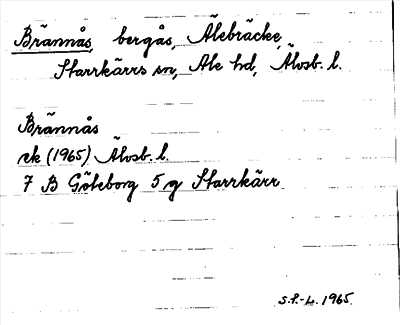 Brännås, bergås, Älebräcke,
Starrkärrs sn, Ale hd, Älvsb. l.
Brännås
ek (1965) Älvsb. l.
7 B Göteborg 5 g Starrkärr
S.P.-L. 1965.